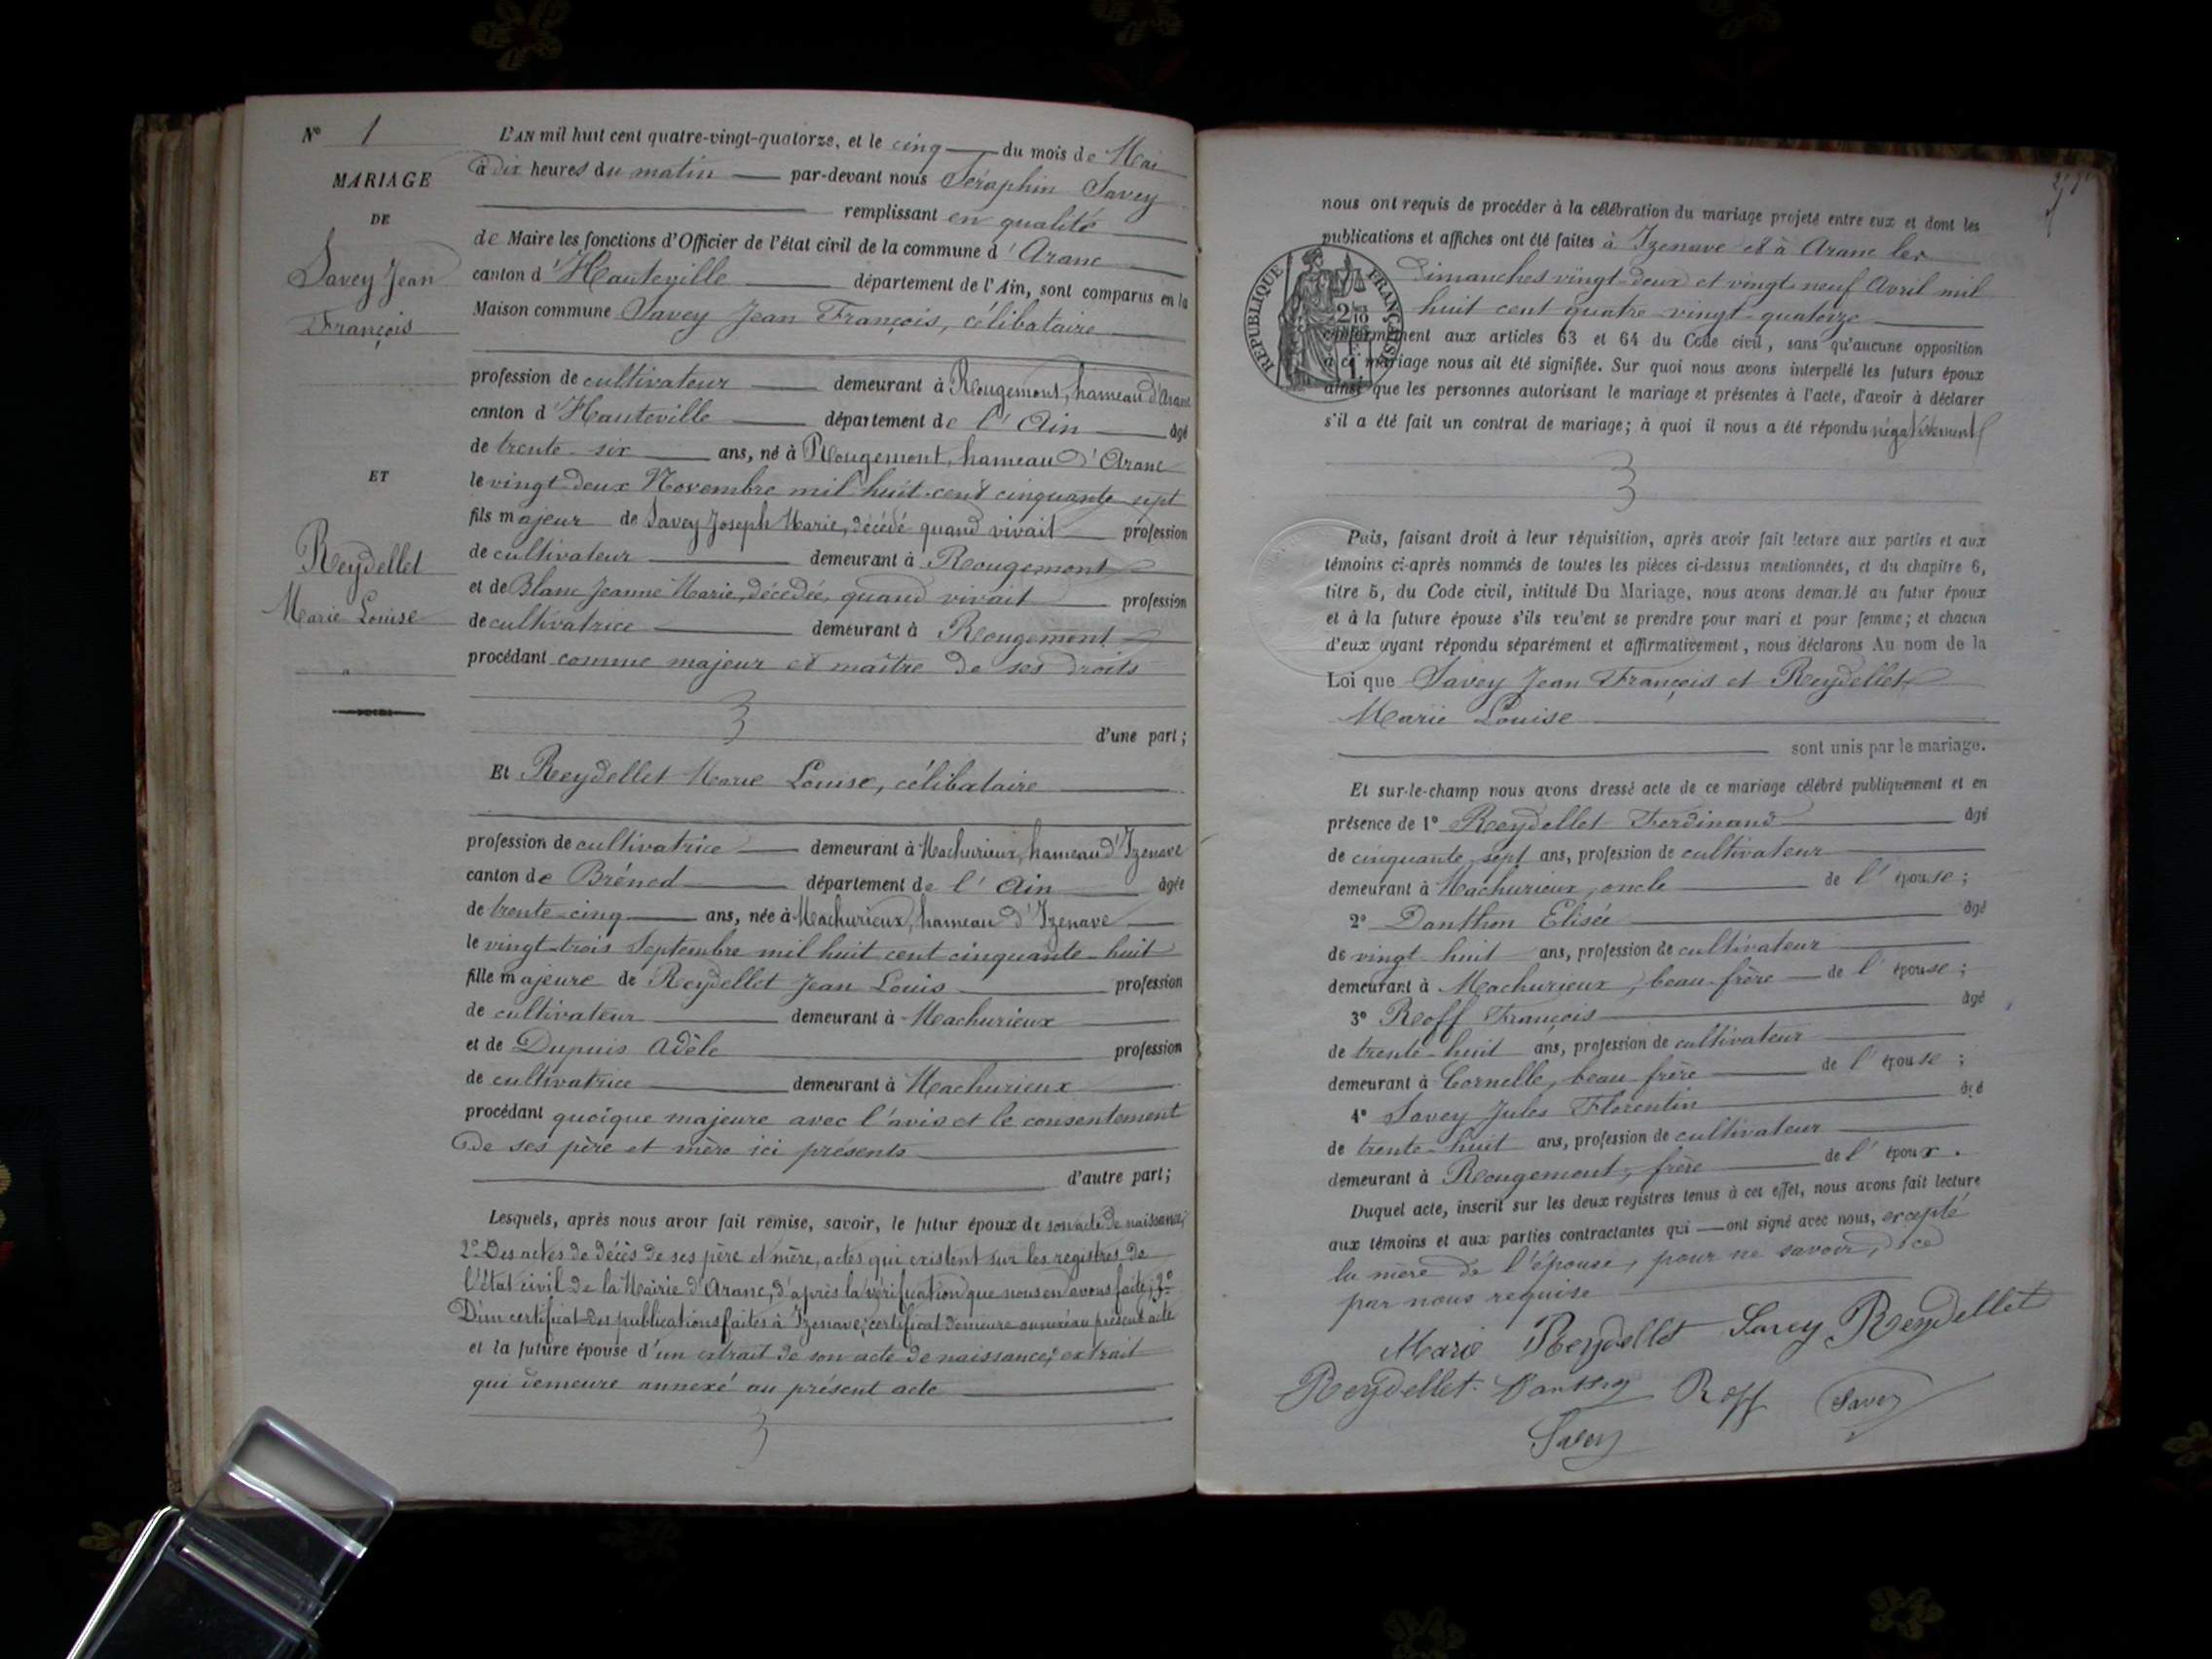 N° 1
MARIAGE
DE
Savey Jean
François
ET
Reydellet
Marie Louise
L'AN mil huit cent quatre-vingt-quatorze, et le cinq du mois de Mai
à dix heures du matin par-devant nous Séraphin Savey
remplissant en qualité
de Maire les fonctions d'Officier de l'état civil de la commune d'Aranc
canton d'Hauteville département de l'Ain, sont comparus en la
Maison commune Savey Jean François, célibataire
profession de cultivateur demeurant à Rougemont, hameau d'Aranc
canton d'Hauteville département de l'Ain âgé
de trente-six ans, né à Rougemont, hameau d'Aranc
le vingt-deux Novembre mil huit cent cinquante-sept
fils majeur de Savey Joseph Marie, décédé quand vivait profession
de cultivateur demeurant à Rougemont
et de Blanc Jeanne Marie, décédée, quand vivait profession
de cultivatrice demeurant à Rougemont
procédant comme majeur et maître de ses droits
d'une part;
Et Reydellet Marie Louise, célibataire
profession de cultivatrice demeurant à Machurieux, hameau d'Izenave
canton de Brénod département de l'Ain âgée
de trente-cinq ans, née à Machurieux, hameau d'Izenave
le vingt-trois Septembre mil huit cent cinquante-huit
fille majeure de Reydellet Jean Louis profession
de cultivateur demeurant à Machurieux
et de Dupuis Adèle profession
de cultivatrice demeurant à Machurieux
procédant quoique majeure avec l'avis et le consentement
de ses père et mère ici présents
d'autre part;
Lesquels, après nous avoir fait remise, savoir, le futur époux de son acte de naissance;
2° Des actes de décès de ses père et mère, actes qui existent sur les registres de
l'état civil de la Mairie d'Aranc, d'après la vérification que nous en avons faite; 3°
D'un certificat des publications faites à Izenave; certificat demeure annexé au présent acte
et la future épouse d'un extrait de son acte de naissance; extrait
qui demeure annexé au présent acte
nous ont requis de procéder à la célébration du mariage projeté entre eux et dont les
publications et affiches ont été faites à Izenave et à Aranc les
Dimanches vingt-deux et vingt-neuf Avril mil
huit cent quatre-vingt-quatorze
RÉPUBLIQUE FRANÇAISE
conformément aux articles 63 et 64 du Code civil, sans qu'aucune opposition
à ce mariage nous ait été signifiée. Sur quoi nous avons interpellé les futurs époux
ainsi que les personnes autorisant le mariage et présentes à l'acte, d'avoir à déclarer
s'il a été fait un contrat de mariage; à quoi il nous a été répondu négativement
Puis, faisant droit à leur réquisition, après avoir fait lecture aux parties et aux
témoins ci-après nommés de toutes les pièces ci-dessus mentionnées, et du chapitre 6,
titre 5, du Code civil, intitulé Du Mariage, nous avons demandé au futur époux
et à la future épouse s'ils veulent se prendre pour mari et pour femme; et chacun
d'eux ayant répondu séparément et affirmativement, nous déclarons Au nom de la
Loi que Savey Jean François et Reydellet
Marie Louise
sont unis par le mariage.
Et sur-le-champ nous avons dressé acte de ce mariage célébré publiquement et en
présence de 1° Reydellet Ferdinand âgé
de cinquante sept ans, profession de cultivateur
demeurant à Machurieux, oncle de l'épouse;
2° Danthon Elisée âgé
de vingt-huit ans, profession de cultivateur
demeurant à Machurieux, beau-frère de l'épouse;
3° Roff François âgé
de trente-huit ans, profession de cultivateur
demeurant à Cornelle, beau frère de l'épouse;
4° Savey Jules Florentin âgé
de trente-huit ans, profession de cultivateur
demeurant à Rougemont, frère de l'époux.
Duquel acte, inscrit sur les deux registres tenus à cet effet, nous avons fait lecture
aux témoins et aux parties contractantes qui ont signé avec nous, excepté
la mère de l'épouse, pour ne savoir, de ce
par nous requise
Marie Reydellet Savey Reydellet
Reydellet. Danthon Roff Savey
Savey